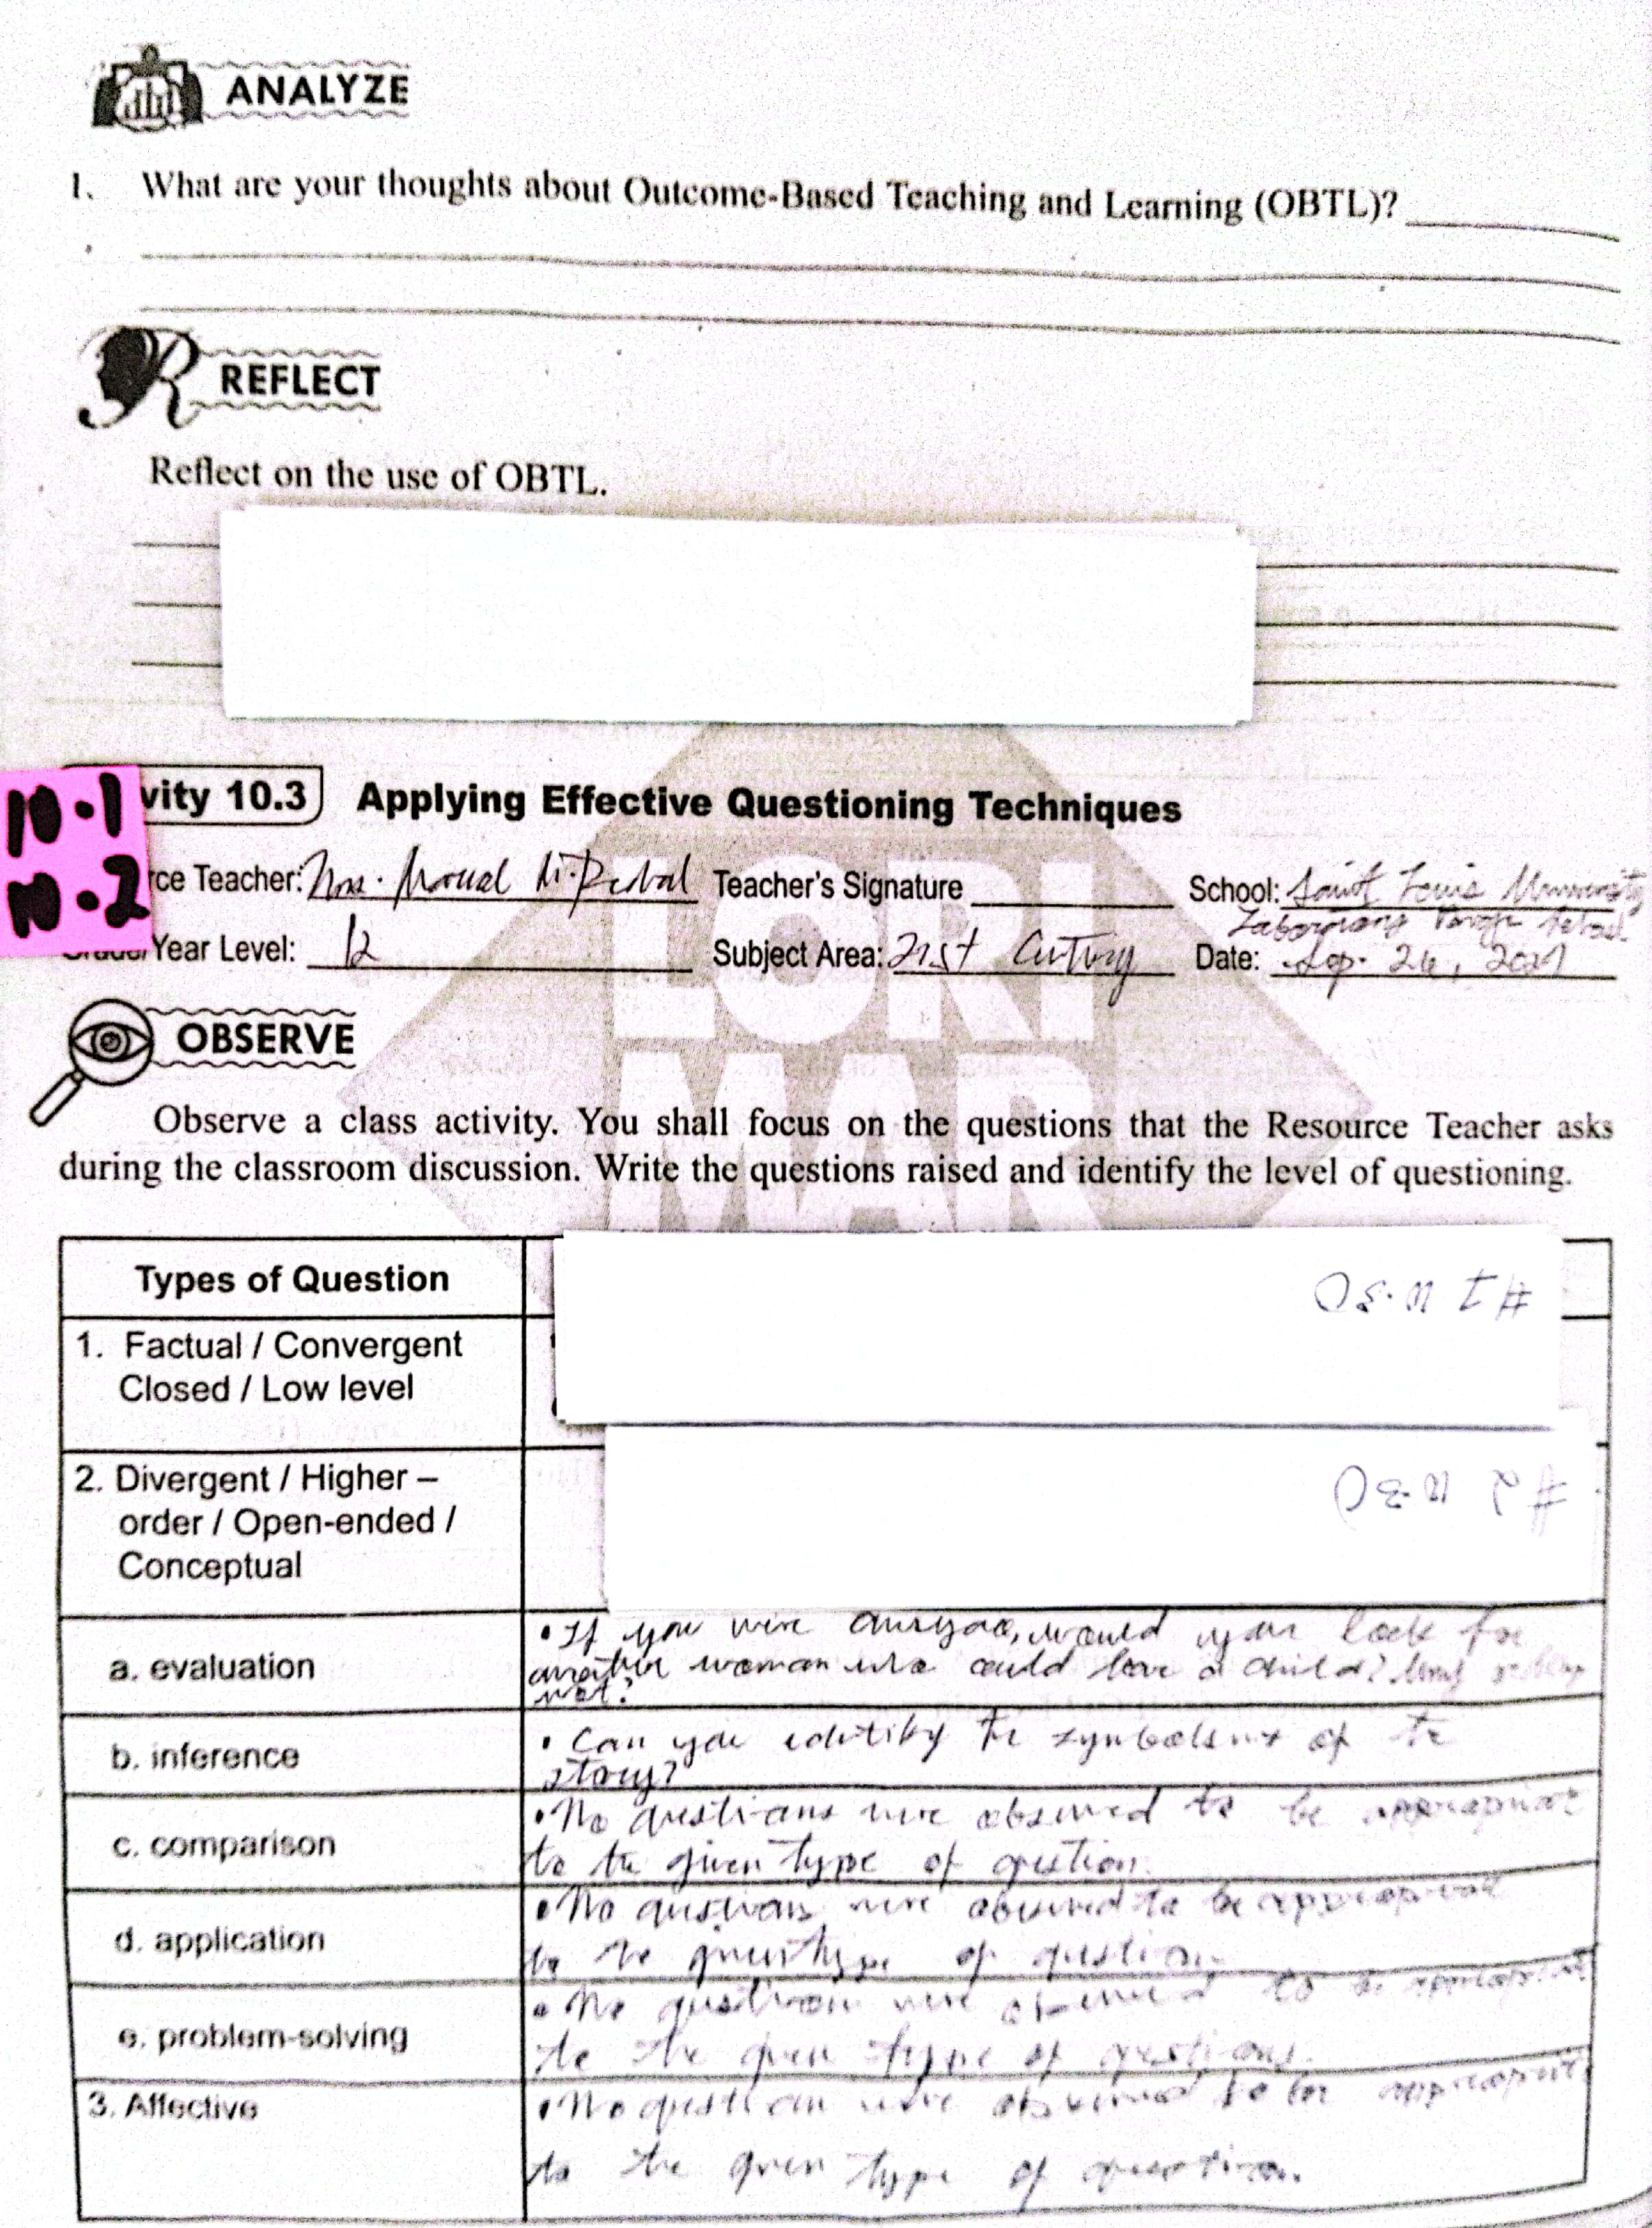 ANALYZE
1. What are your thoughts about Outcome-Based Teaching and Learning (OBTL)?
REFLECT
Reflect on the use of OBTL.
10.1
10.2
vity 10.3 Applying Effective Questioning Techniques
rce Teacher: Teacher's Signature School: Saint Louis University
Grade/Year Level: 12 Subject Area: 21st Date: Sep. 26,
OBSERVE
LORI
MAR
Observe a class activity. You shall focus on the questions that the Resource Teacher asks
during the classroom discussion. Write the questions raised and identify the level of questioning.
Types of Question
1. Factual / Convergent
Closed / Low level
2. Divergent / Higher –
order / Open-ended /
Conceptual
a. evaluation
• If you were would you look for
another woman who could have a child?
not?
b. inference
• Can you the of
story?
c. comparison
• No questions were observed to be
to the given type of question.
d. application
• No questions were observed to be
to the given type of question.
e. problem-solving
• No question were observed to be
to the given type of questions.
3. Affective
• No question were observed to be
to the given type of question.